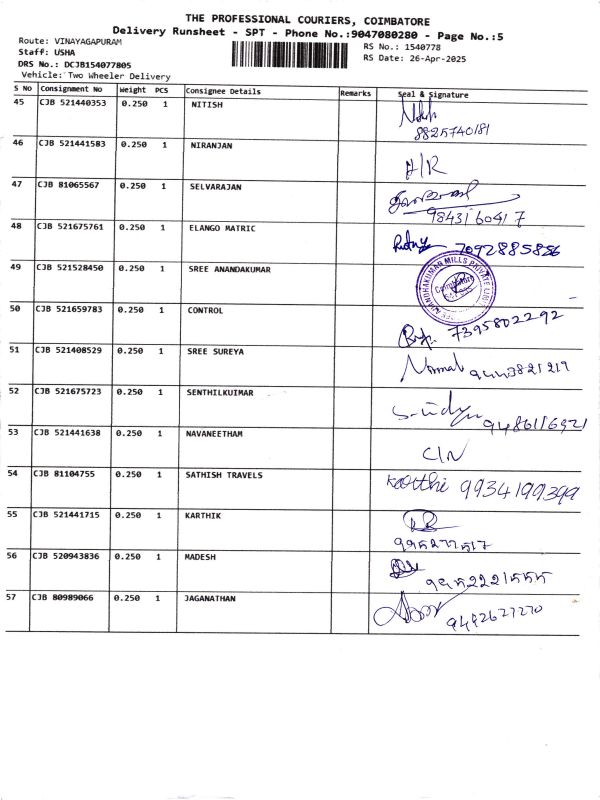 THE PROFESSIONAL COURIERS, COIMBATORE
Delivery Runsheet - SPT - Phone No.:9047080280 - Page No.:5
Route: VINAYAGAPURAM
RS No.: 1540778
Staff: USHA
RS Date: 26-Apr-2025
DRS No.: DCJB154077805
Vehicle: Two Wheeler Delivery
S No Consignment No Weight PCS Consignee Details Remarks Seal & Signature
45 CJB 521440353 0.250 1 NITISH
8825740181
46 CJB 521441583 0.250 1 NIRANJAN
47 CJB 81065567 0.250 1 SELVARAJAN
9843160417
48 CJB 521675761 0.250 1 ELANGO MATRIC
7092885856
49 CJB 521528450 0.250 1 SREE ANANDAKUMAR
50 CJB 521659783 0.250 1 CONTROL
7395802292
51 CJB 521408529 0.250 1 SREE SUREYA
Normal
52 CJB 521675723 0.250 1 SENTHILKUIMAR
53 CJB 521441638 0.250 1 NAVANEETHAM
C/N
54 CJB 81104755 0.250 1 SATHISH TRAVELS
Karthi 9934199399
55 CJB 521441715 0.250 1 KARTHIK
56 CJB 520943836 0.250 1 MADESH
57 CJB 80989066 0.250 1 JAGANATHAN